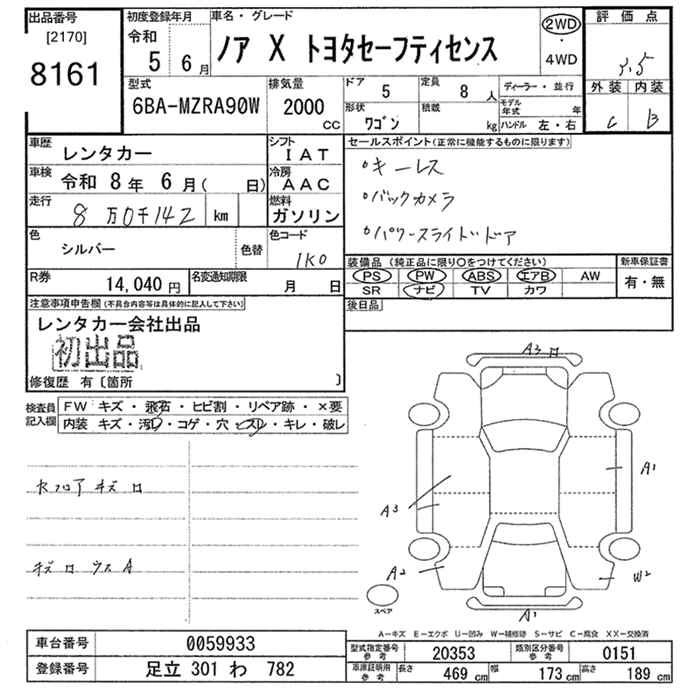 出品番号 [2170] 8161
初度登録年月 令和 5 6月
車名・グレード
ノア X トヨタセーフティセンス
2WD・4WD
評価点
3.5
外装 内装
C B
型式 6BA-MZRA90W
排気量 2000 CC
ドア 5
定員 8 人
形状 ワゴン
積載 kg
ディーラー・並行
モデル年式 年
ハンドル 左・右
車歴 レンタカー
シフト IAT
車検 令和 8年 6月( 日)
冷房 AAC
走行 8万0千142 km
燃料 ガソリン
色 シルバー
色替
色コード 1K0
R券 14,040 円
名変通知期限 月 日
セールスポイント(正常に機能するものに限ります)
・キーレス
・バックカメラ
・パワースライドドア
装備品(純正品に限り○をつけてください)
PS PW ABS エアB AW
SR ナビ TV カワ
新車保証書
有・無
後日品
注意事項申告欄(不具合内容等は具体的に記入して下さい)
レンタカー会社出品
初出品
修復歴 有〔箇所 〕
検査員記入欄
FW キズ・飛石・ヒビ割・リペア跡・×要
内装 キズ・汚レ・コゲ・穴・スレ・キレ・破レ
A3
A1
A3
A2
W2
A1
スペア
A−キズ E−エクボ U−凹み W−補修跡 S−サビ C−腐食 XX−交換済
車台番号 0059933
登録番号 足立 301 わ 782
型式指定番号 参考 20353
類別区分番号 参考 0151
車庫証明用 参考 長さ 469 cm 幅 173 cm 高さ 189 cm